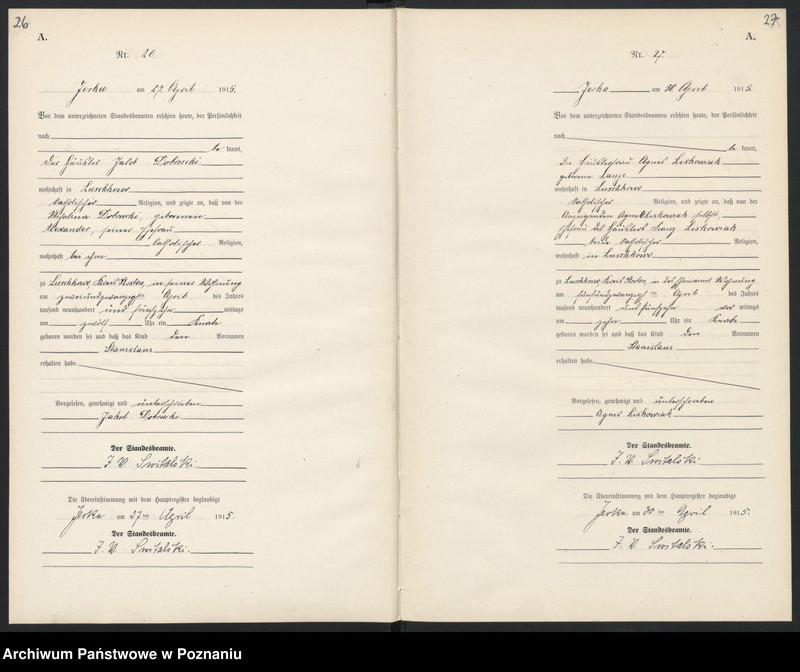 26
A.
Nr. 26.
Jerka am 27 April 1915.
Vor dem unterzeichneten Standesbeamten erschien heute, der Persönlichkeit
nach
be kannt,
der Häusler Jakob Dobrucki
wohnhaft in Luschkowo
katholischer Religion, und zeigte an, daß von der
Dobrucki, geborenen
Alexander, seiner Ehefrau
katholischer Religion,
wohnhaft bei ihm
zu Luschkowo, Kreis Kosten, in seiner Wohnung
am zweiundzwanzigten April des Jahres
tausend neunhundert und fünfzehn mittags
um zwölf Uhr ein Knabe
geboren worden sei und daß das Kind den Vornamen
Stanislaus
erhalten habe.
Vorgelesen, genehmigt und unterschrieben
Jakob Dobrucki
Der Standesbeamte.
J. V. Switalski.
Die Übereinstimmung mit dem Hauptregister beglaubigt
Jerka am 27ten April 1915.
Der Standesbeamte.
J. V. Switalski.
27
A.
Nr. 27.
Jerka am 30. April 1915.
Vor dem unterzeichneten Standesbeamten erschien heute, der Persönlichkeit
nach
be kannt,
die Häuslerfrau Agnes Liskowiak
geborene Lange
wohnhaft in Luschkowo
katholischer Religion, und zeigte an, daß von der
Anzeigenden Agnes Liskowiak selbst,
Ehefrau des Häuslers Franz Liskowiak
beide katholischer Religion,
wohnhaft in Luschkowo
zu Luschkowo, Kreis Kosten, in des Ehemanns Wohnung
am fünfundzwanzigsten April des Jahres
tausend neunhundert und fünfzehn vor mittags
um zehn Uhr ein Knabe
geboren worden sei und daß das Kind den Vornamen
Stanislaus
erhalten habe.
Vorgelesen, genehmigt und unterschrieben
Agnes Liskowiak
Der Standesbeamte.
J. V. Switalski.
Die Übereinstimmung mit dem Hauptregister beglaubigt
Jerka am 30ten April 1915.
Der Standesbeamte.
J. V. Switalski.
Archiwum Państwowe w Poznaniu